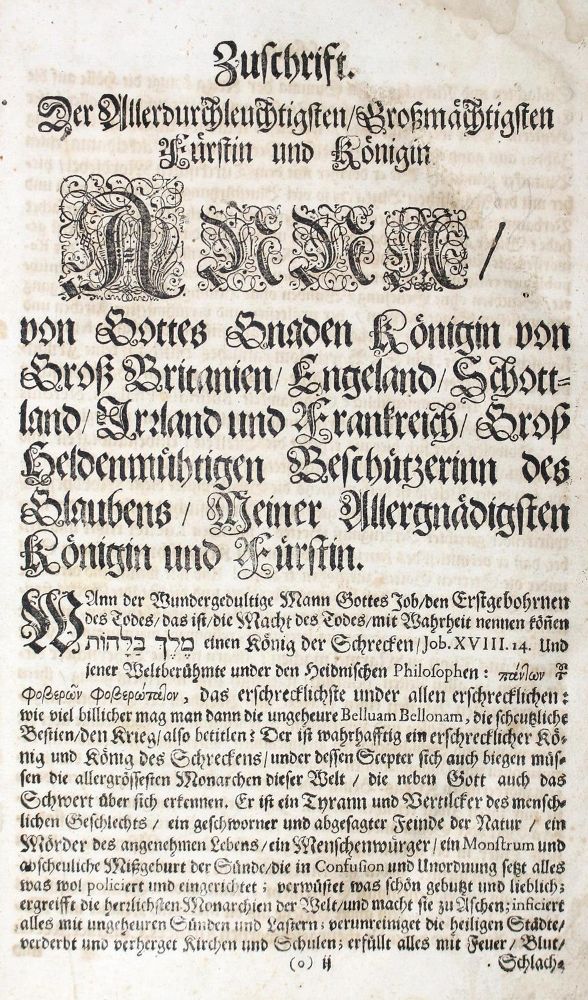 Zuschrift.
Der Allerdurchleuchtigsten/Großmächtigsten
Fürstin und Königin
ANNN/
von Gottes Gnaden Königin von
Groß Britanien/ Engeland/ Schott-
land/ Irrland und Franckreich/ Groß
Heldenmühtigen Beschützerinn des
Glaubens/ Meiner Allergnädigsten
Königin und Fürstin.
WAnn der Wundergedultige Mann Gottes Job/den Erstgebohrnen
des Todes/das ist/die Macht des Todes/mit Wahrheit nennen können
מֶלֶךְ בַּלָּהוֹת einen König der Schrecken/Job. XVIII. 14. Und
jener Weltberühmte unter den Heidnischen Philosophen: πάντων τῶν
φοβερῶν φοβερώτατον, das erschrecklichste unter allen erschrecklichen:
wie viel billicher mag man dann die ungeheure Belluam Bellonam, die scheutzliche
Bestien/den Krieg/also betitlen? Der ist wahrhafftig ein erschrecklicher Kö-
nig und König des Schreckens/unter dessen Scepter sich auch biegen müs-
sen die allergrössesten Monarchen dieser Welt / die neben Gott auch das
Schwert über sich erkennen. Er ist ein Tyrann und Vertilcker des mensch-
lichen Geschlechts / ein geschworner und abgesagter Feinde der Natur / ein
Mörder des angenehmen Lebens/ein Menschenwürger/ein Monstrum und
abscheuliche Mißgeburt der Sünde/die in Confusion und Unordnung setzt alles
was wol policiert und eingerichtet; verwüstet was schön gebutzt und lieblich;
ergreifft die herzlichsten Monarchien der Welt/und macht sie zu Aschen; inficiert
alles mit ungeheuren Sünden und Lastern; verunreiniget die heiligen Städte/
verderbt und verherget Kirchen und Schulen; erfüllt alles mit Feuer/ Blut/
(o) ii Schlach-